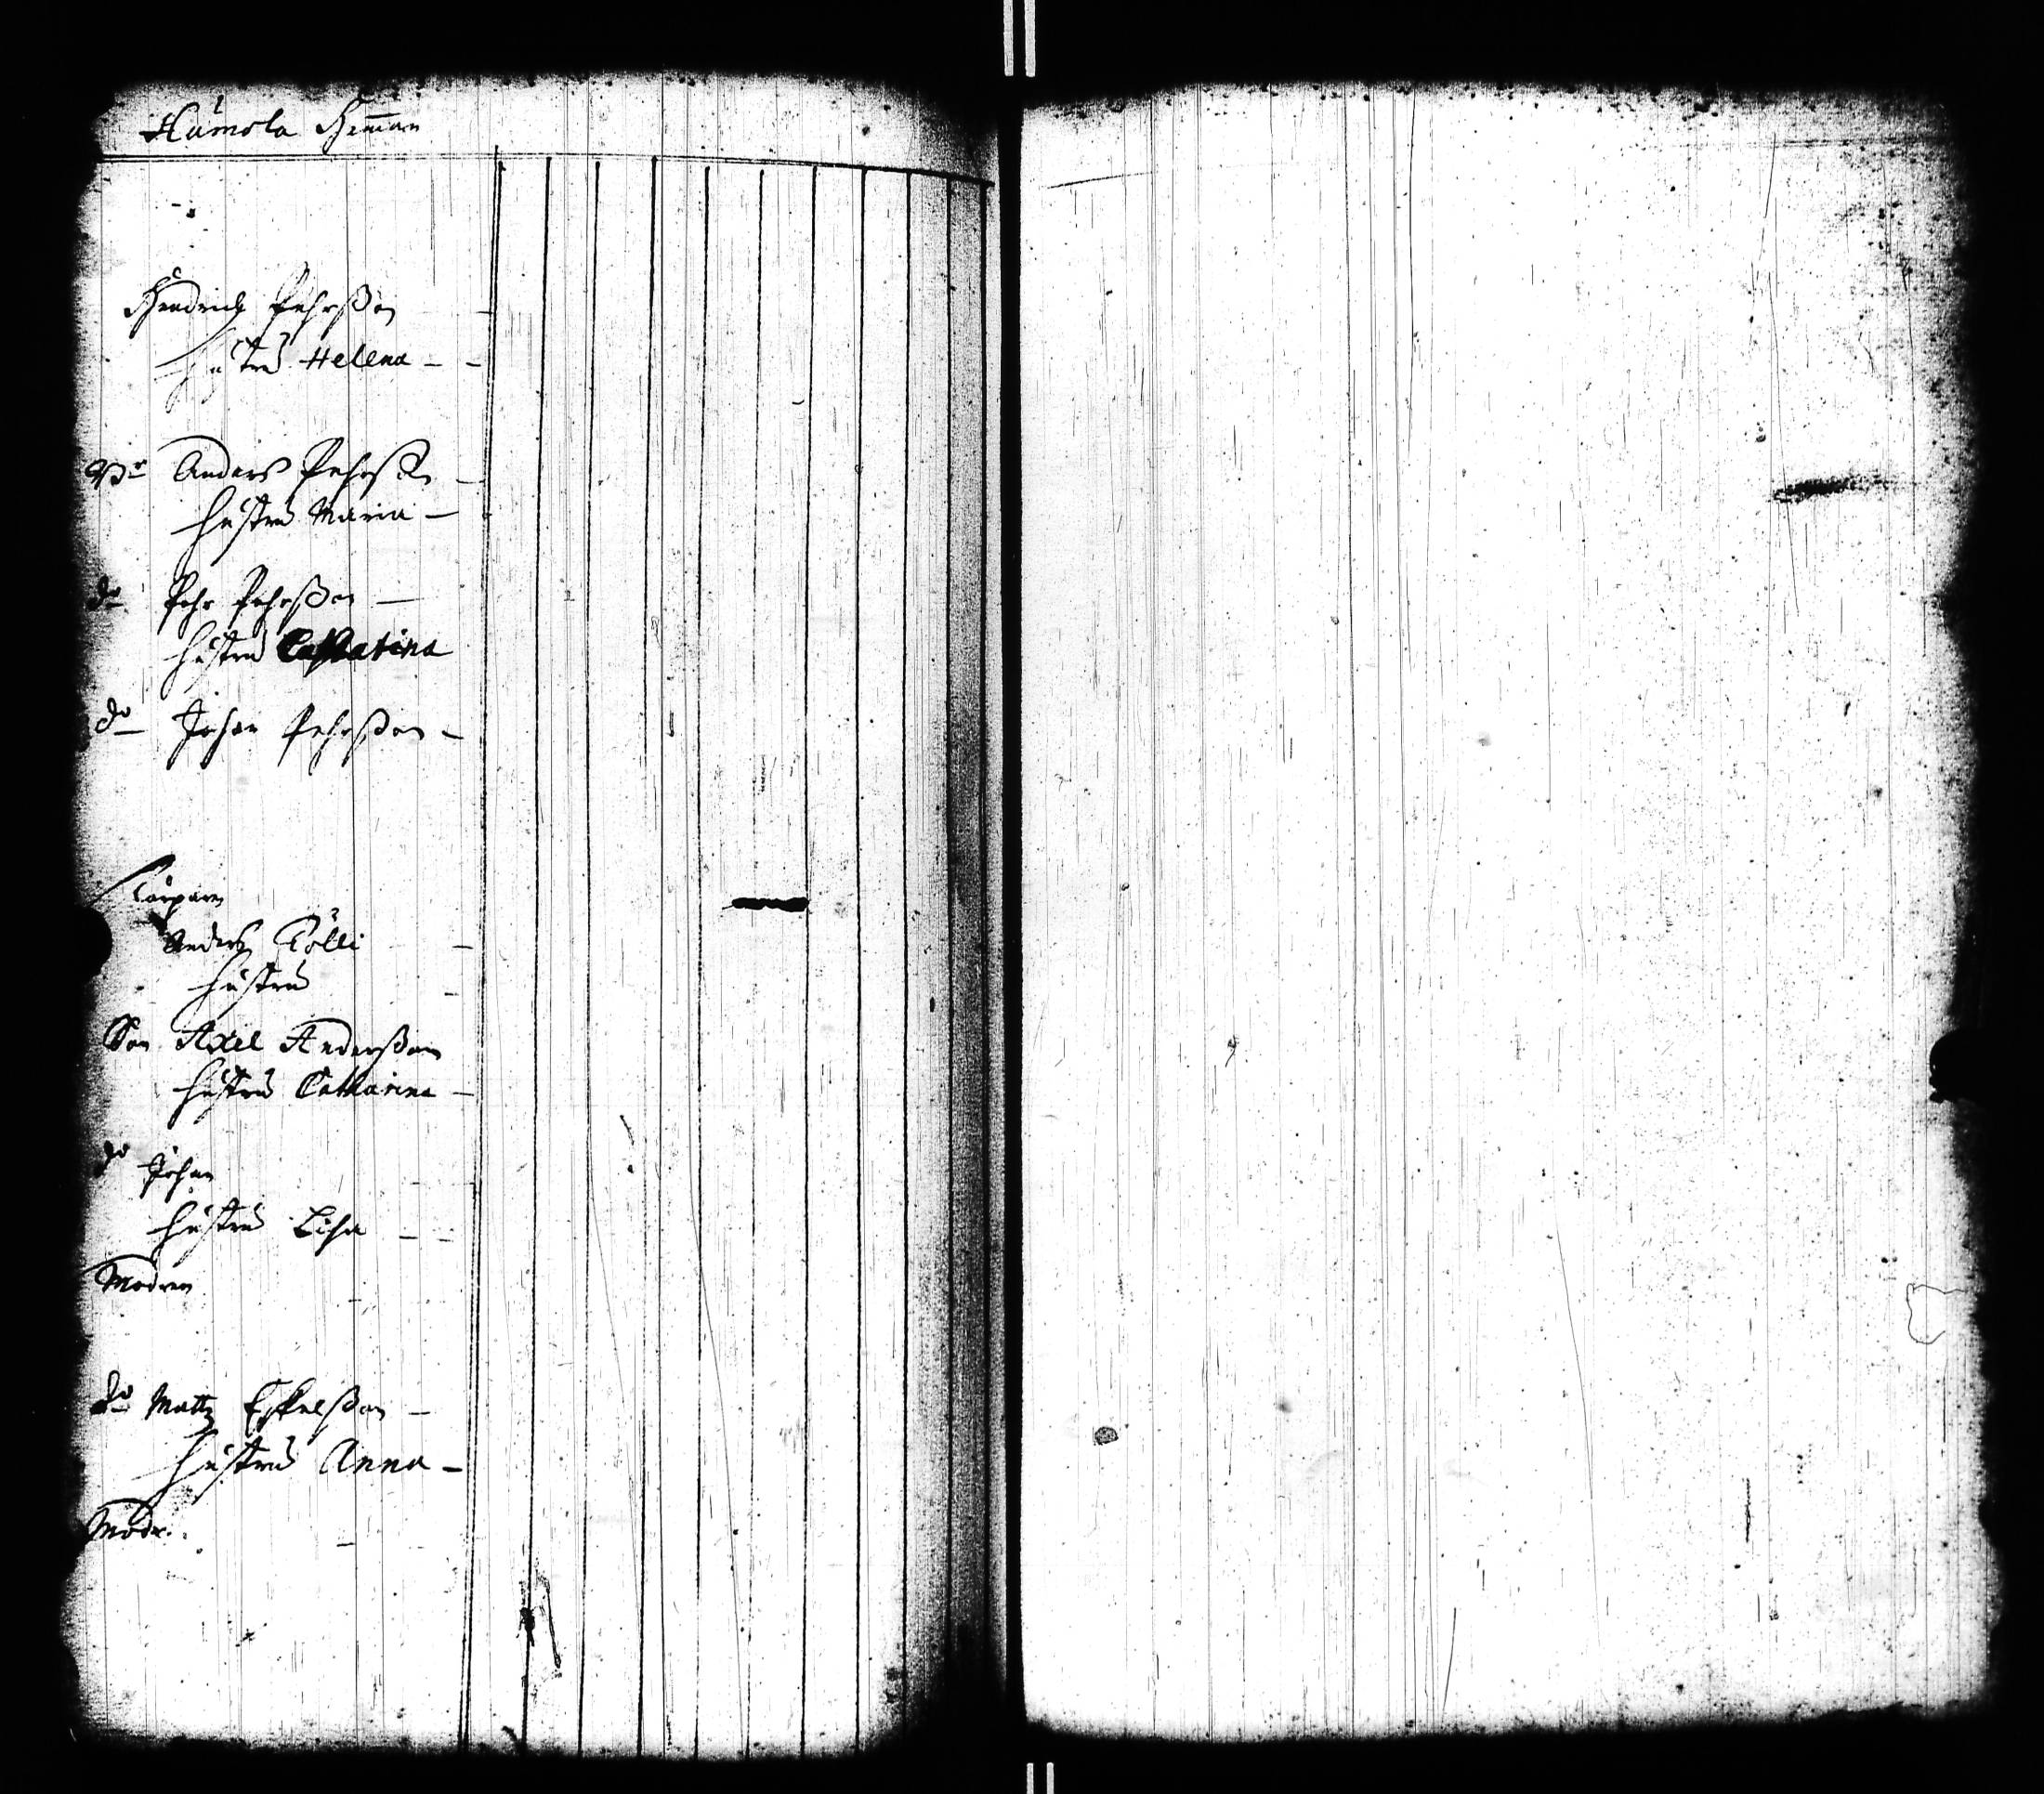 Hůmola Hem̄an
Hendrich Pehrßon
hustru Helena - -
Br Anders Pehrßon -
hustru Maria -
do Pehr Pehrßon -
hustru Catarina
do Johan Pehrßon -
Torparen
Anders Cölli -
hustru -
Son Axel Anderßon
hustru Catharina -
do Johan
hustru Lisa - -
Modren
do Matts Eskelßon -
hustru Anna -
Modr.